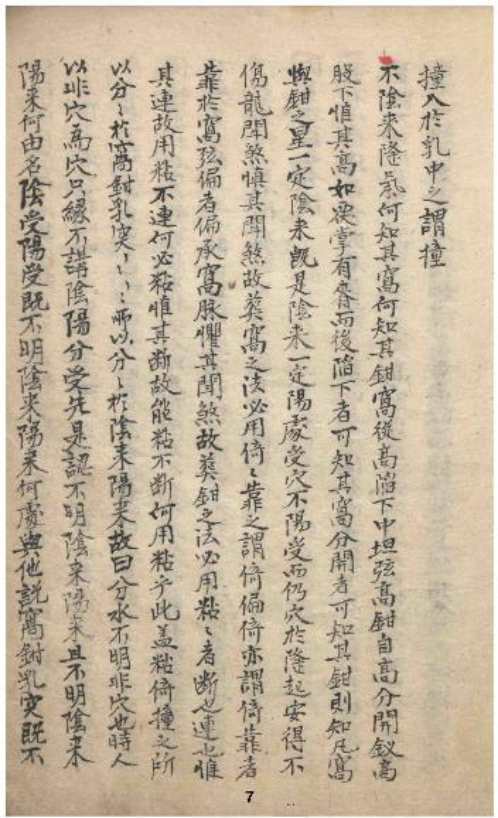 撞入於乳中之謂撞
不陰来降氣何知其窩何知其鉗窩従高陷下中坦弦高鉗自高分開釵高
股下惟其高如要掌有脊而後陷下者可知其窩分開者可知其鉗則知凡窩
與鉗之星一定陰来既是陰来一定陽處受穴不陽受而仍穴於隆起安得不
傷龍闘煞慎其闘煞故葬窩之法必用倚〻靠之謂倚偏倚亦謂倚靠者
靠於窩弦偏者偏承窩脉懼其闘煞故葬鉗之法必用粘〻者断也連也惟
其連故用粘不連何必粘惟其断故能粘不断何用粘乎此盖粘倚撞之所
以分〻於窩鉗乳突〻〻〻〻所以分〻於陰来陽来故曰分水不明非穴也時人
以非穴為穴只縁不講陰陽分受先是認不明陰来陽来且不明陰来
陽来何由名陰受陽受既不明陰来陽来何處與他説窩鉗乳突既不
7